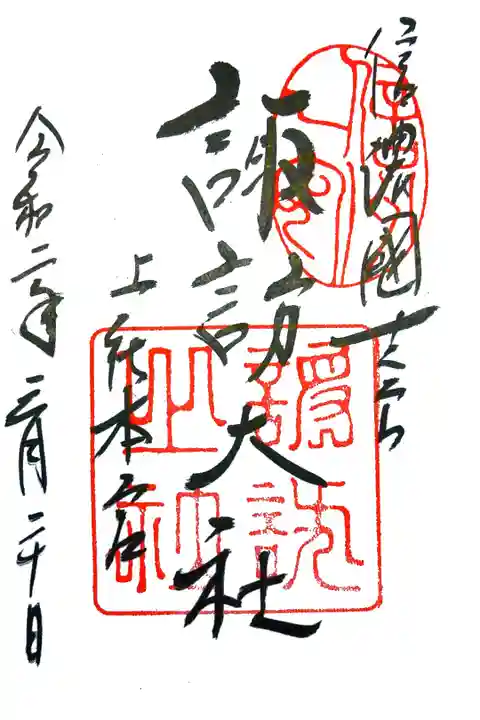 信濃國一之宮
諏訪大社
上社本宮
令和二年三月二十日
諏訪